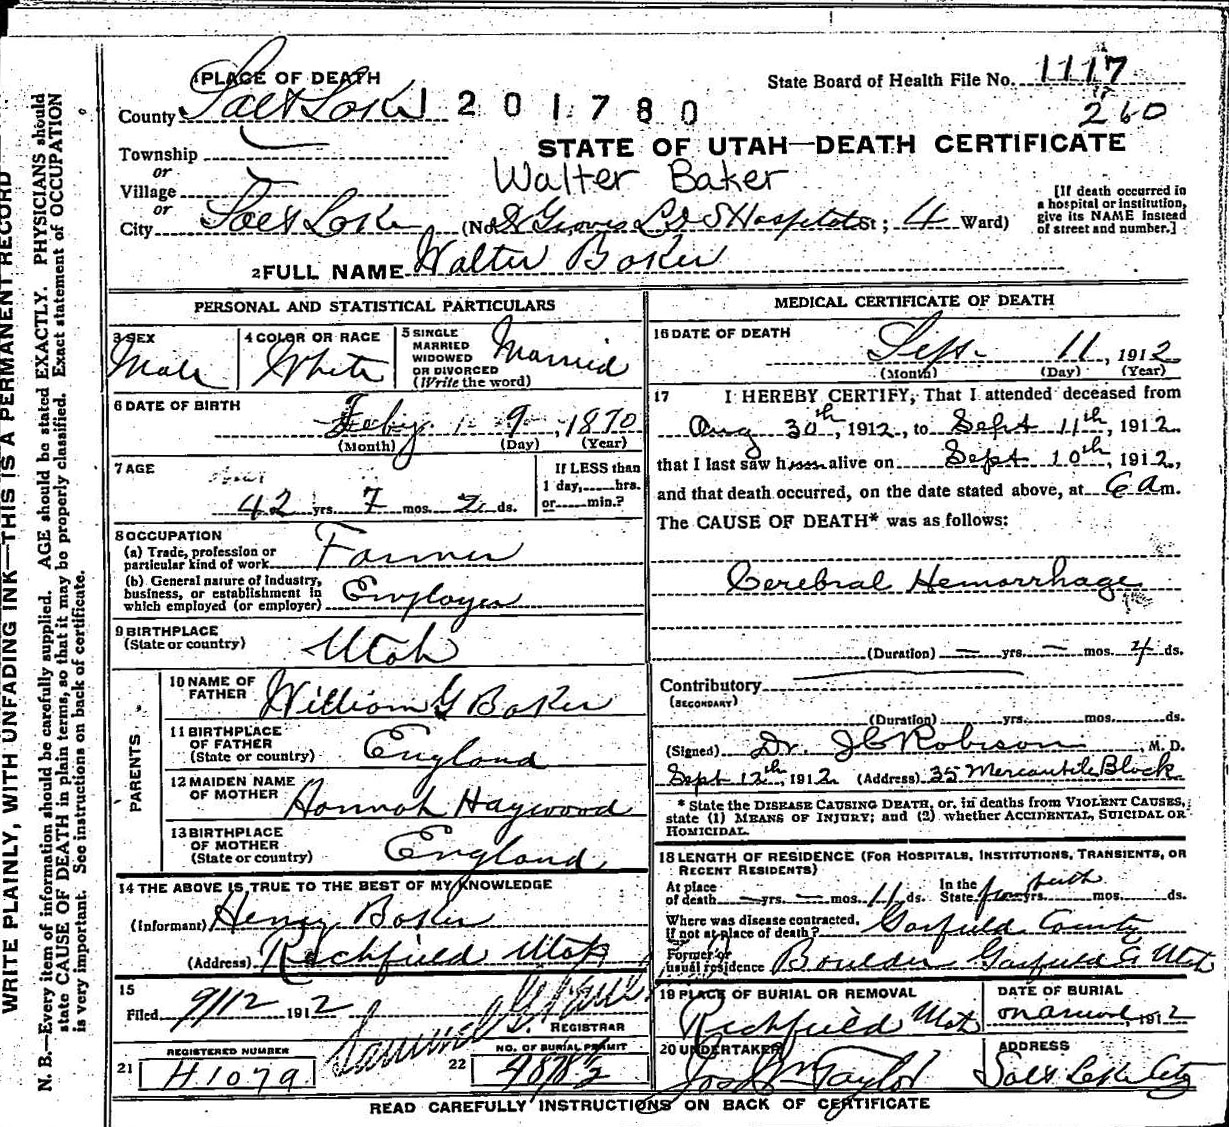 WRITE PLAINLY, WITH UNFADING INK—THIS IS A PERMANENT RECORD
N. B.—Every item of information should be carefully supplied. AGE should be stated EXACTLY. PHYSICIANS should
state CAUSE OF DEATH in plain terms, so that it may be properly classified. Exact statement of OCCUPATION
is very important. See instructions on back of certificate.
1 PLACE OF DEATH
County Salt Lake
1201780
State Board of Health File No. 1117
260
STATE OF UTAH—DEATH CERTIFICATE
Township
or
Village
Walter Baker
or
City Salt Lake (No. Groves L D S Hospital St; 4 Ward)
[If death occurred in
a hospital or institution,
give its NAME instead
of street and number.]
2 FULL NAME Walter Baker
PERSONAL AND STATISTICAL PARTICULARS
3 SEX
Male
4 COLOR OR RACE
White
5 SINGLE
MARRIED
WIDOWED
OR DIVORCED
(Write the word)
Married
6 DATE OF BIRTH
Feby. 9, 1870
(Month) (Day) (Year)
7 AGE
42 yrs. 7 mos. 2 ds.
If LESS than
1 day, hrs.
or min.?
8 OCCUPATION
(a) Trade, profession or
particular kind of work Farmer
(b) General nature of industry,
business, or establishment in
which employed (or employer) Employer
9 BIRTHPLACE
(State or country) Utah
PARENTS
10 NAME OF
FATHER William G Baker
11 BIRTHPLACE
OF FATHER
(State or country) England
12 MAIDEN NAME
OF MOTHER Hannah Haywood
13 BIRTHPLACE
OF MOTHER
(State or country) England
14 THE ABOVE IS TRUE TO THE BEST OF MY KNOWLEDGE
(Informant) Henry Baker
(Address) Richfield Utah
15
Filed 9/12 1912
Samuel G.
REGISTRAR
21 REGISTERED NUMBER
H1079
22 NO. OF BURIAL PERMIT
MEDICAL CERTIFICATE OF DEATH
16 DATE OF DEATH
Sept. 11, 1912
(Month) (Day) (Year)
17 I HEREBY CERTIFY, That I attended deceased from
Aug 30th, 1912, to Sept 11th, 1912.
that I last saw him alive on Sept 10th, 1912,
and that death occurred, on the date stated above, at 6 a m.
The CAUSE OF DEATH* was as follows:
Cerebral Hemorrhage
(Duration) — yrs. — mos. 4 ds.
Contributory
(SECONDARY)
(Duration) yrs. mos. ds.
(Signed) Dr. J C Robison, M. D.
Sept 12th, 1912 (Address) 35 Mercantile Block
* State the DISEASE CAUSING DEATH, or, in deaths from VIOLENT CAUSES,
state (1) MEANS OF INJURY; and (2) whether ACCIDENTAL, SUICIDAL OR
HOMICIDAL.
18 LENGTH OF RESIDENCE (FOR HOSPITALS, INSTITUTIONS, TRANSIENTS, OR
RECENT RESIDENTS)
At place
of death — yrs. — mos. 11 ds.
In the
State from birth yrs. mos. ds.
Where was disease contracted,
If not at place of death? Garfield County
Former or
usual residence Boulder Garfield Co Utah
19 PLACE OF BURIAL OR REMOVAL
Richfield Utah
DATE OF BURIAL
on arrival, 1912
20 UNDERTAKER
Jos Wm Taylor
ADDRESS
Salt Lake City
READ CAREFULLY INSTRUCTIONS ON BACK OF CERTIFICATE